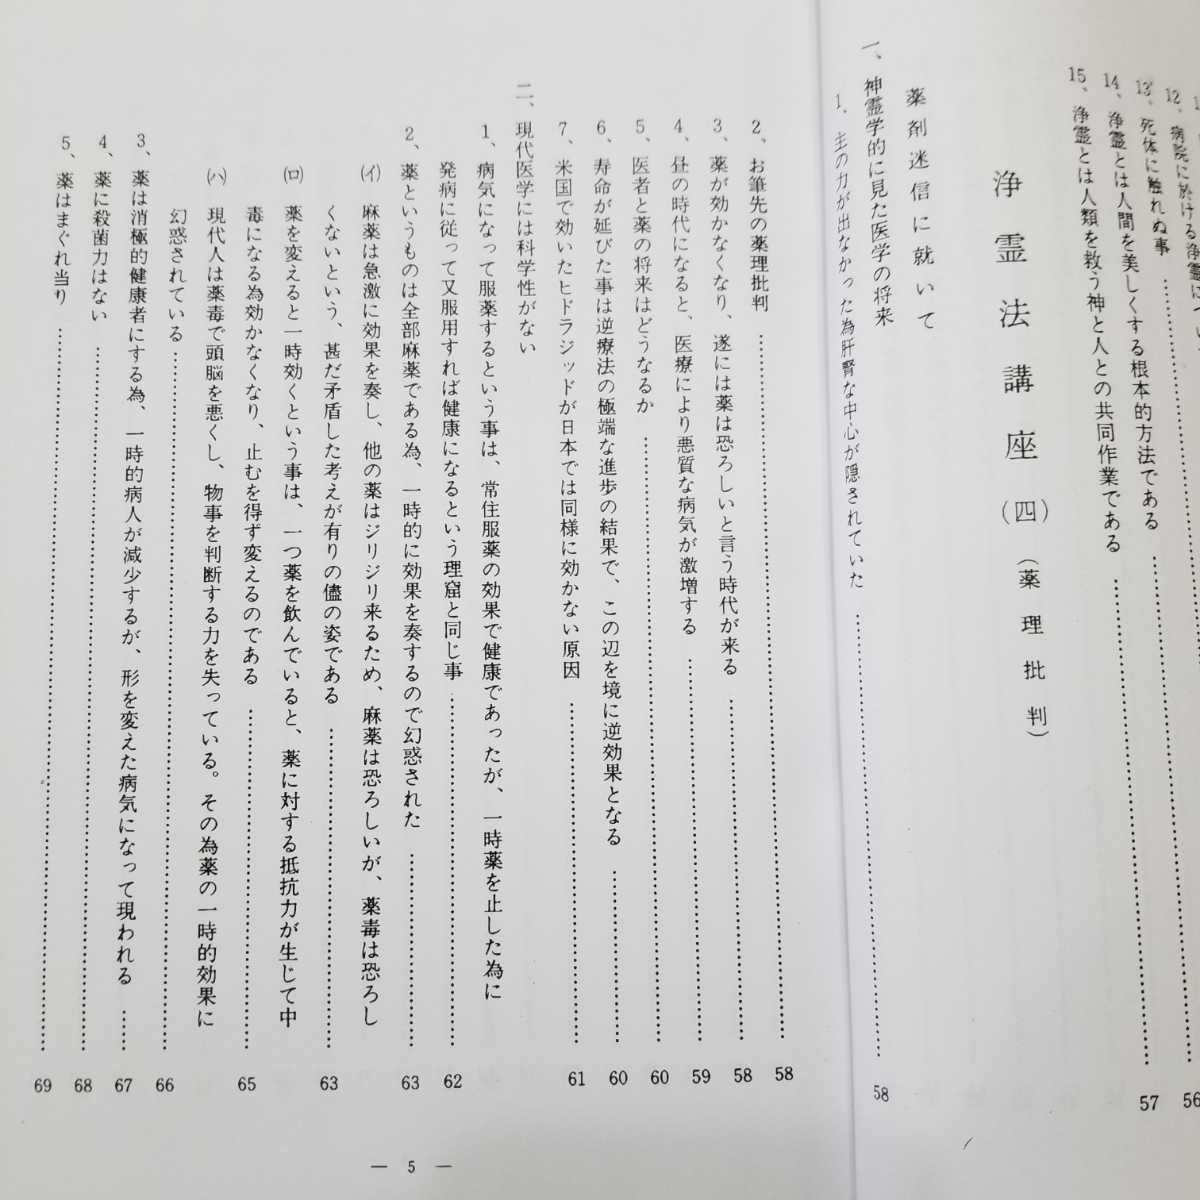 12、病院に於ける浄霊に
56
13、死体に触れぬ事
14、浄霊とは人間を美しくする根本的方法である
57
15、浄霊とは人類を救う神と人との共同作業である
浄霊法講座(四)(薬理批判)
薬剤迷信に就いて
一、神霊学的に見た医学の将来
1、主の力が出なかった為肝腎な中心が隠されていた
58
2、お筆先の薬理批判
58
3、薬が効かなくなり、遂には薬は恐ろしいと言う時代が来る
58
4、昼の時代になると、医療により悪質な病気が激増する
59
5、医者と薬の将来はどうなるか
60
6、寿命が延びた事は逆療法の極端な進歩の結果で、この辺を境に逆効果となる
60
7、米国で効いたヒドラジッドが日本では同様に効かない原因
61
二、現代医学には科学性がない
1、病気になって服薬するという事は、常住服薬の効果で健康であったが、一時薬を止した為に
発病に従って又服用すれば健康になるという理窟と同じ事
62
2、薬というものは全部麻薬である為、一時的に効果を奏するので幻惑された
63
(イ)麻薬は急激に効果を奏し、他の薬はジリジリ来るため、麻薬は恐ろしいが、薬毒は恐ろし
くないという、甚だ矛盾した考えが有りの儘の姿である
63
(ロ)薬を変えると一時効くという事は、一つ薬を飲んでいると、薬に対する抵抗力が生じて中
毒になる為効かなくなり、止むを得ず変えるのである
65
(ハ)現代人は薬毒で頭脳を悪くし、物事を判断する力を失っている。その為薬の一時的効果に
幻惑されている
66
3、薬は消極的健康者にする為、一時的病人が減少するが、形を変えた病気になって現われる
67
4、薬に殺菌力はない
68
5、薬はまぐれ当り
69
— 5 —